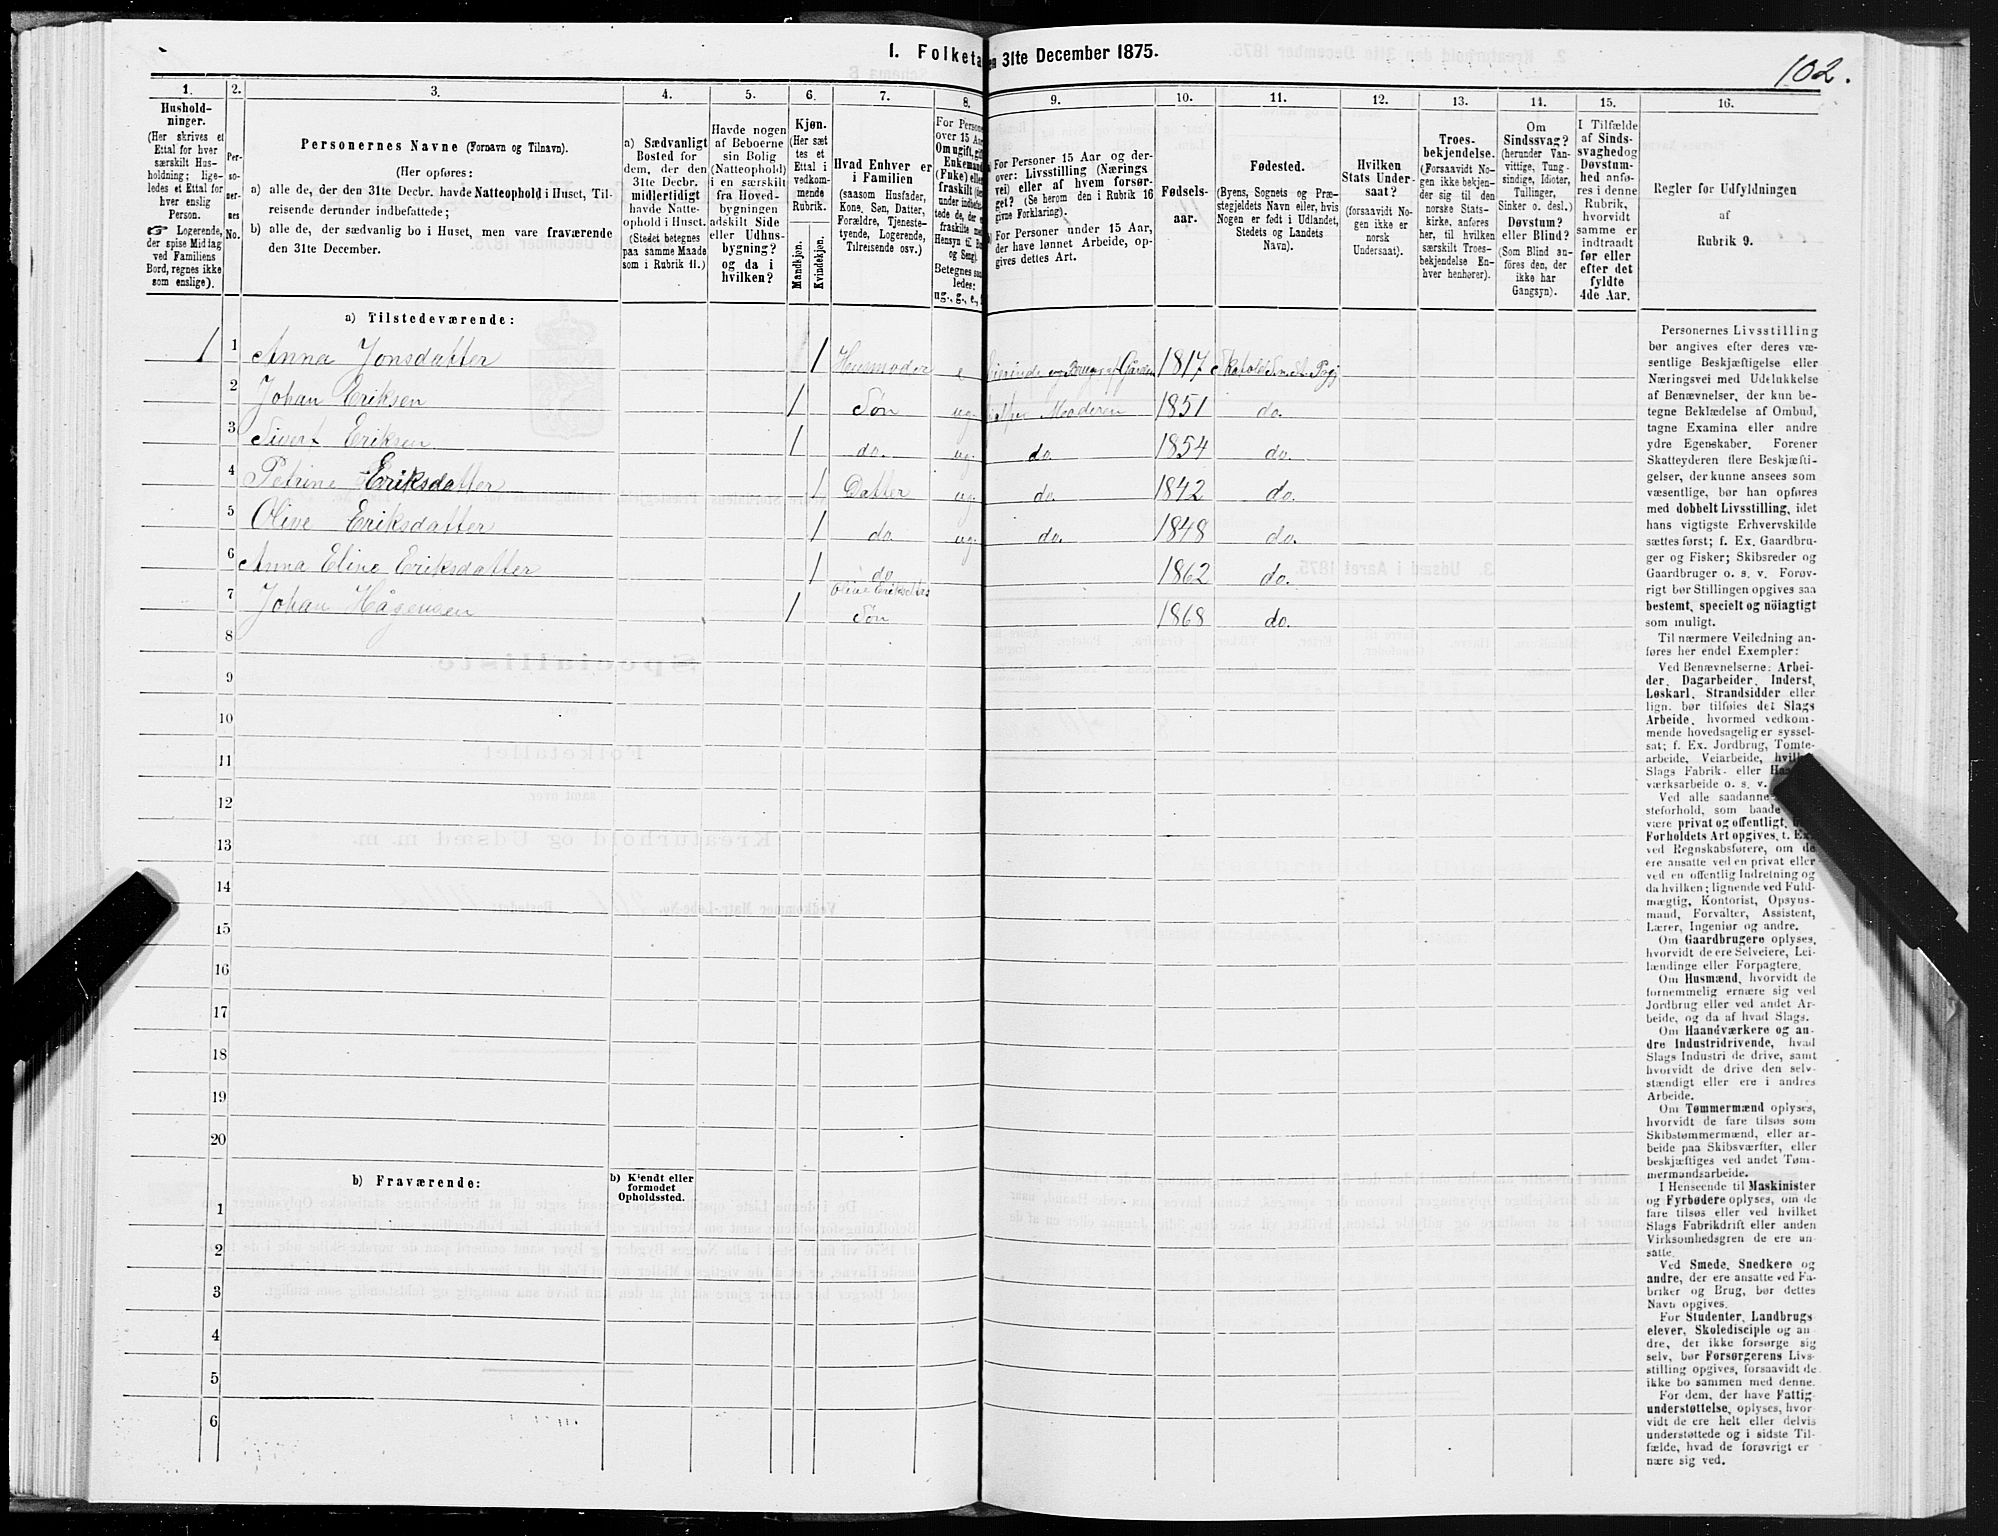 102.
I. Folketa
en 31te December 1875.
1.
2.
3.
4.
5.
6.
7.
8.
9.
10.
11.
12.
13.
14.
15.
16.
Hushold-
ninger.
(Her skrives et
Ettal for hver
særskilt Hus-
holdning; lige-
ledes et Ettal for
hver enslig
Person.
☞ Logerende,
der spise Middag
ved Familiens
Bord, regnes ikke
som enslige).
Per-
so-
ner-
nes
No.
Personernes Navne (Fornavn og Tilnavn).
(Her opføres:
a) alle de, der den 31te Decbr. havde Natteophold i Huset, Til-
reisende derunder indbefattede;
b) alle de, der sædvanlig bo i Huset, men vare fraværende
den 31te December.
a) Sædvanligt
Bosted for
dem, der den
31te Decbr.
midlertidigt
havde Natte-
ophold i Huset.
(Stedet betegnes
paa samme Maade
som i Rubrik 11.)
Havde nogen
af Beboerne
sin Bolig
(Natteophold)
i en særskilt
fra Hoved-
bygningen
adskilt Side
eller Udhus-
bygning?
og da i
hvilken?
Kjøn.
(Her sæt
tes et
Ettal i
vedkom-
mende
Rubrik.
Mandkjøn.
Kvindekjøn.
Hvad Enhver er
i Familien
(saasom Husfader,
Kone, Søn, Datter,
Forældre, Tjeneste-
tyende, Logerende,
Tilreisende osv.)
For Persone
over 15 Aar
Om ugift, gift
Enkemand
(Enke) eller
fraskilt
og Seng).
Betegnes saa
ledes:
ug., g., e., f.
For Personer 15 Aar og der-
over: Livsstilling (Nærings
vei) eller af hvem forsør-
get? (Se herom den i Rubrik 16
givne Forklaring).
For Personer under 15 Aar,
der have lønnet Arbeide, op-
gives dettes Art.
Fødsels-
aar.
Fødested.
(Byens, Sognets og Præ-
stegjeldets Navn eller, hvis
Nogen er født i Udlandet,
Stedets og Landets
Navn).
Hvilken
Stats Under-
saat?
(forsaavidt No-
gen ikke er
norsk
Undersaat).
Troes-
bekjendelse.
(Forsaavidt No-
gen ikke bekjen-
der sig til den
norske Stats-
kirke, anføres
her, til hvilken
særskilt Troes-
bekjendelse En-
hver henhører).
Om
Sindssvag?
(herunder Van-
vittige, Tung-
sindige, Idioter,
Tullinger,
Sinker o. desl.)
Døvstum?
eller Blind?
(Som Blind an-
føres den, der
ikke har
Gangsyn).
I Tilfælde
af Sinds-
svaghed og
Døvstum-
hed anfø-
res i denne
Rubrik,
hvorvidt
samme er
indtraadt
før eller
efter det
fyldte
4de Aar.
Regler for Udfyldningen
af
Rubrik 9.
a) Tilstedeværende:
1 1 Anna Jonsdatter 1 Husmoder e 1817
2 Johan Eriksen 1 Søn ug. Moderen 1851 do.
3 Sivert Eriksen 1 do. ug. do 1854 do.
4 Petrine Eriksdatter 1 Datter ug. do 1842 do.
5 Oline Eriksdatter 1 do ug. do. 1848 do.
6 Anna Eline Eriksdatter 1 do 1862 do.
7 Johan Hågensen 1 Oline Eriksdtrs Søn 1868 do.
8
9
10
11
12
13
14
15
16
17
18
19
20
b) Fraværende:
b) Kjendt eller
formodet
Opholdssted.
1
2
3
4
5
6
Personernes Livsstilling
bør angives efter deres væ-
sentlige Beskjæftigelse eller
Næringsvei med Udelukkelse
af Benævnelser, der kun be-
tegne Beklædelse af Ombud,
tagne Examina eller andre
ydre Egenskaber. Forener
Skatteyderen flere Beskjæfti-
gelser, der kunne ansees som
væsentlige, bør han opføres
med dobbelt Livsstilling, idet
hans vigtigste Erhvervskilde
sættes først; f. Ex. Gaardbru-
ger og Fisker; Skibsreder og
Gaardbruger o. s. v. Forøv-
rigt bør Stillingen opgives saa
bestemt, specielt og nöiagtigt
som muligt.
Til nærmere Veiledning an-
føres her endel Exempler:
Ved Benævnelserne: Arbei-
der, Dagarbeider, Inderst,
Løskarl, Strandsidder eller
lign. bør tilføies det Slags
Arbeide, hvormed vedkom-
mende hovedsagelig er syssel-
sat; f. Ex. Jordbrug, Tomte-
arbeide, Veiarbeide,
Slags Fabrik- eller
værksarbeide o. s. v.
Ved alle saadanne
steforhold, som baade
være privat og offentligt,
Forholdets Art opgives, t. Ex.
ved Regnskabsførere, om de
ere ansatte ved en privat eller
ved en offentlig Indretning og
da hvilken; lignende ved Fuld-
mægtig, Kontorist, Opsyns-
mand, Forvalter, Assistent,
Lærer, Ingeniør og andre.
Om Gaardbrugere oplyses,
hvorvidt de ere Selveiere, Lei-
lændinge eller Forpagtere.
Om Husmænd, hvorvidt de
fornemmelig ernære sig ved
Jordbrug eller ved andet Ar-
beide, og da af hvad Slags.
Om Haandværkere og an-
dre Industridrivende, hvad
Slags Industri de drive, samt
hvorvidt de drive den selv-
stændigt eller ere i andres
Arbeide.
Om Tømmermænd oplyses,
hvorvidt de fare tilsøs som
Skibstømmermænd, eller ar-
beide paa Skibsværfter, eller
beskjæftiges ved andet Tøm-
mermandsarbeide.
I Henseende til Maskinister
og Fyrbødere oplyses, om de
fare tilsøs eller ved hvilket
Slags Fabrikdrift eller anden
Virksomhedsgren de ere an-
satte.
Ved Smede, Snedkere og
andre, der ere ansatte ved Fa-
briker og Brug, bør dettes
Navn opgives.
For Studenter, Landbrugs
elever, Skoledisciple og an-
dre, der ikke forsørge sig
selv, bør Forsørgerens Livs-
stilling opgives, forsaavidt de
ikke bo sammen med denne.
For dem, der have Fattig
understøttelse, oplyses, hvor-
vidt de ere helt eller delvis
understøttede og i sidste Til-
fælde, hvad de forøvrigt er
nære sig ved.